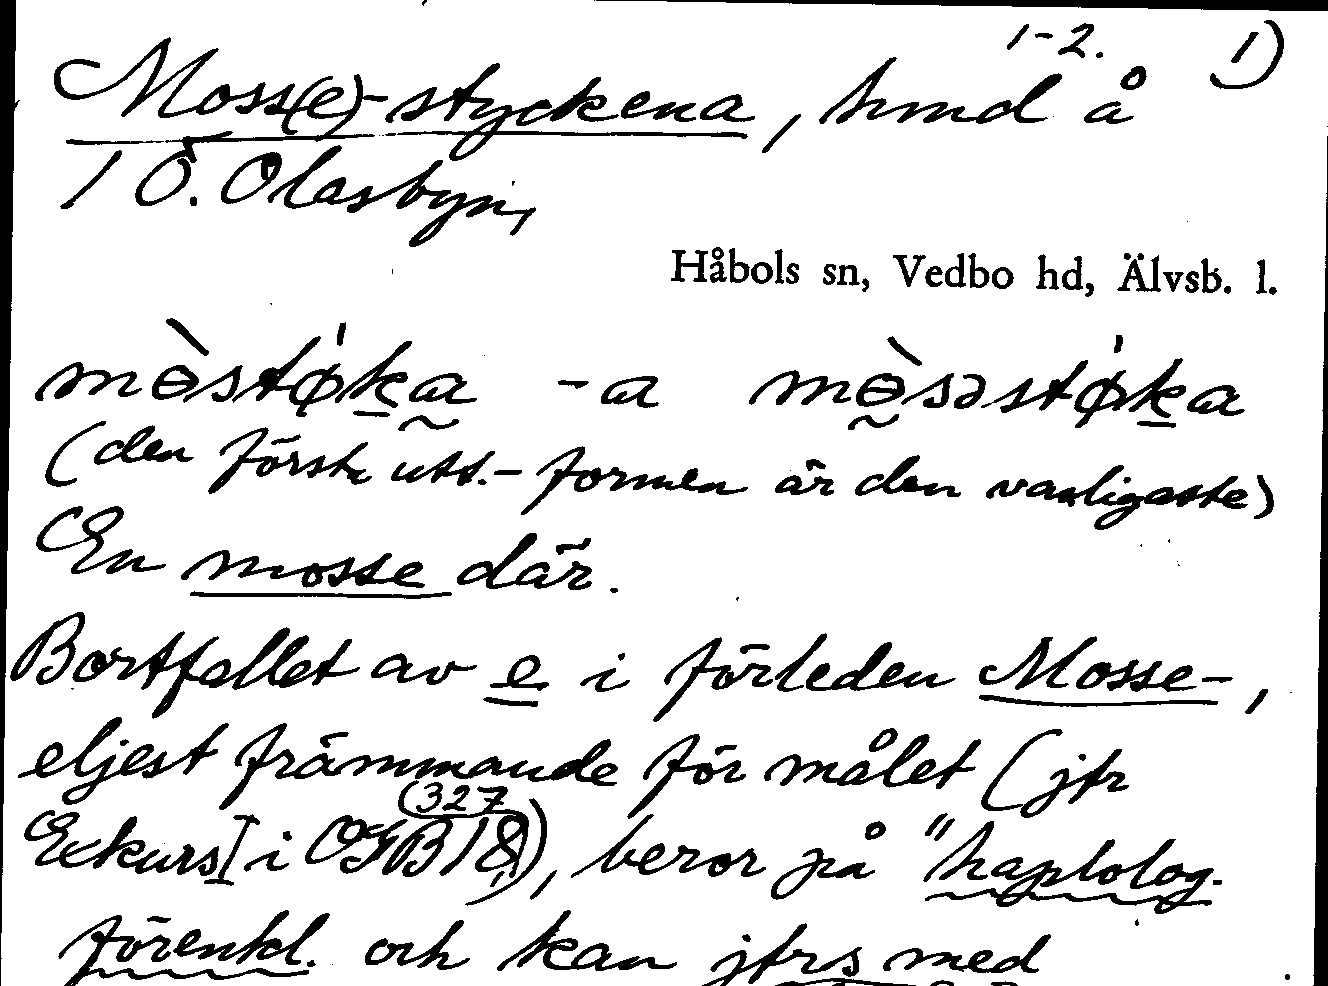 1-2. 1)
Moss(e)-styckena, hmd å
1 Ö. Olasbyn,
Håbols sn, Vedbo hd, Älvsb. l.
mɵ̀stø̍ka -a mɵ̀səstø̍ka
(den första utt.-formen är den vanligaste)
En mosse där.
Bortfallet av e i förleden Mosse-,
eljest främmande för målet (jfr
Exkurs I i OGB 18, (327)), beror på "haplolog.
förenkl. och kan jfrs med